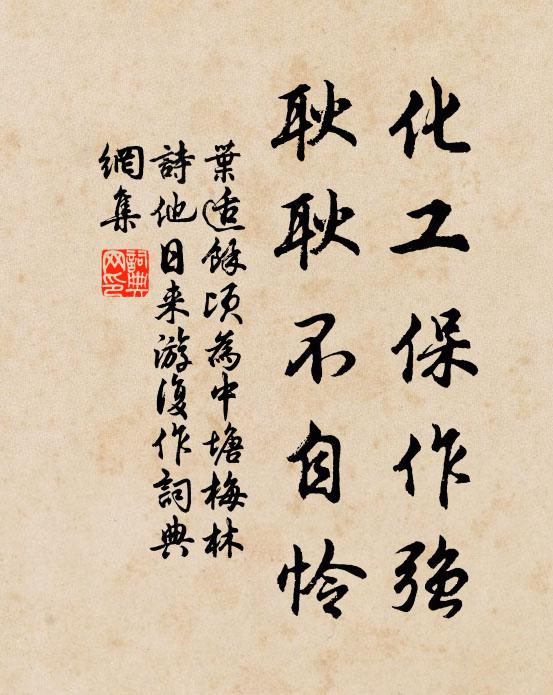 化工保作强
耿耿不自怜
葉适餘頃為中塘梅林
詩他日来游復作詞典
網集
詞典网印